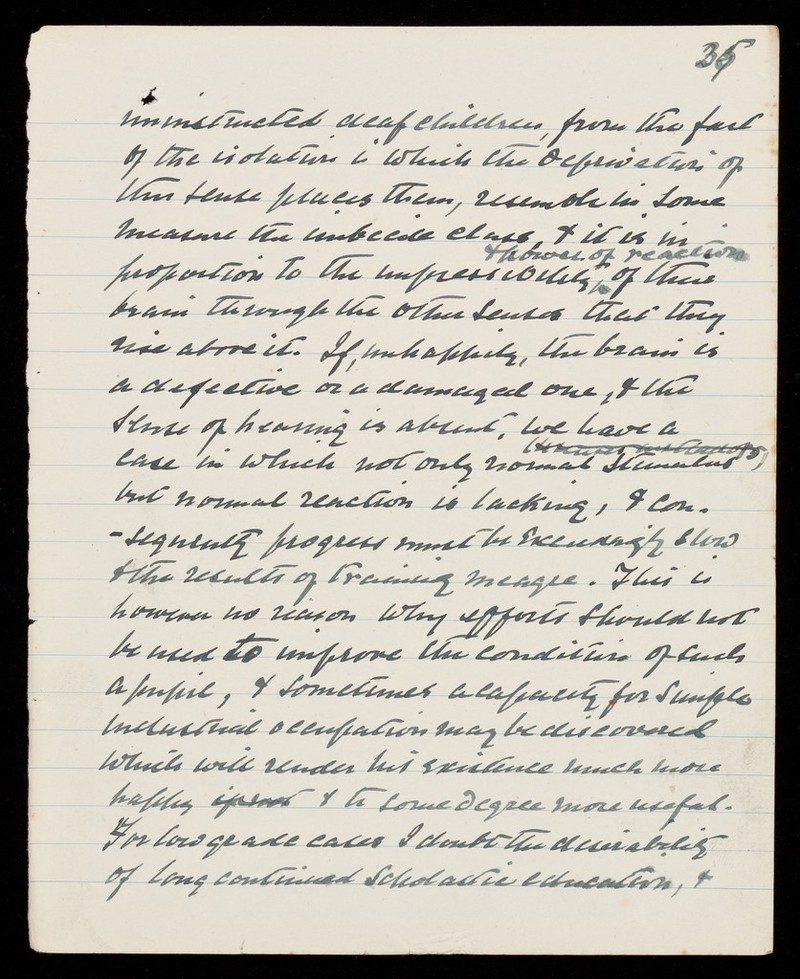 35
uninstructed deaf children, from the fact
of the isolation in which the deprivation of
this sense places them, resemble in some
measure the imbecile class, & it is in
& power of reaction
proportion to the impressibility of their
brain through the other senses that they
rise above it. If, unhappily, the brain is
a defective or a damaged one, & the
sense of hearing is absent, we have a
case in which not only normal stimulus,
but normal reaction is lacking, & con-
-sequently progress must be exceedingly slow
& the results of training meagre. This is
however no reason why efforts should not
be used to improve the condition of such
a pupil, & sometimes a capacity for simple
industrial occupation may be discovered
which will render his existence much more
happy if not & to some degree more useful.
For low grade cases I doubt the desirability
of long continued scholastic education, &